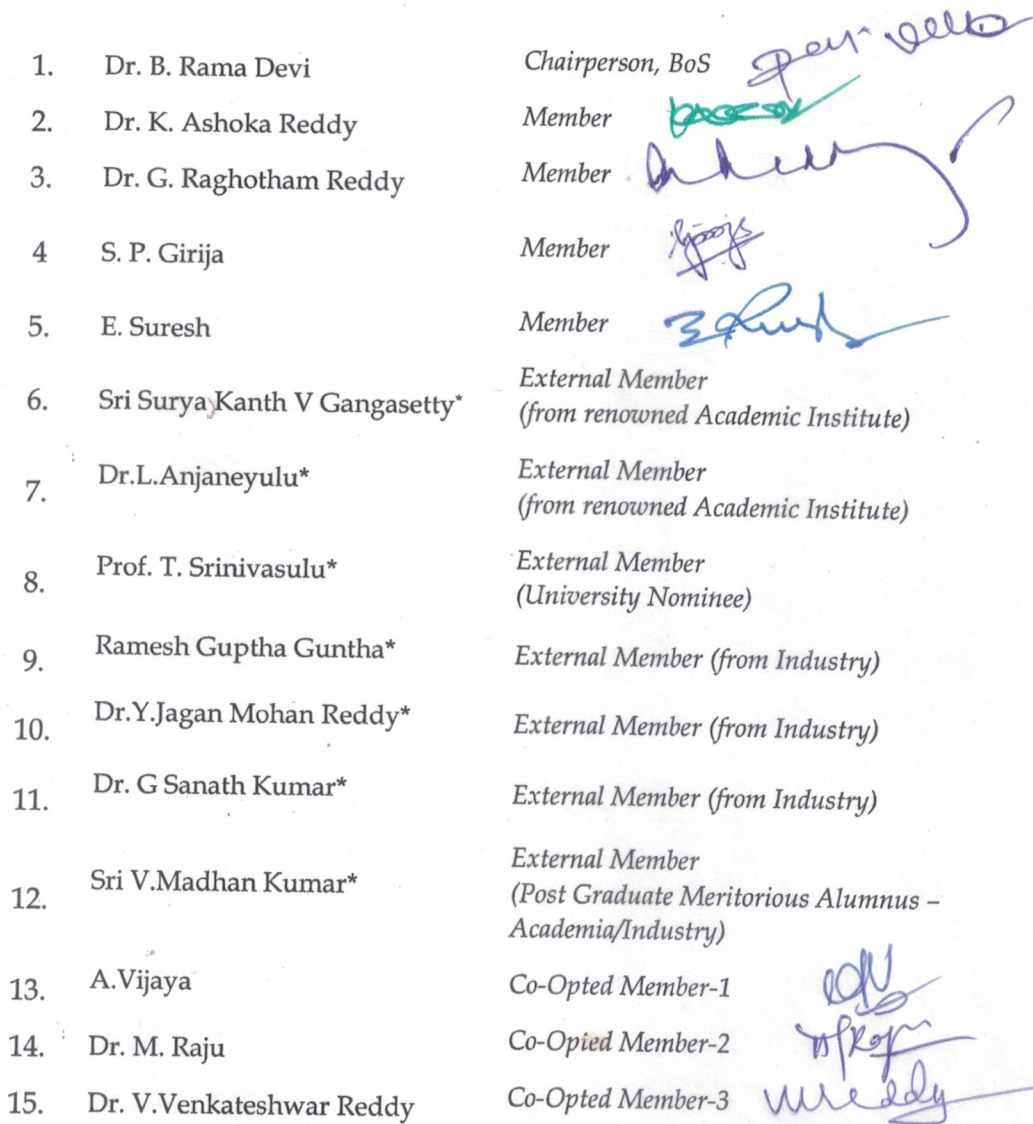 1. Dr. B. Rama Devi Chairperson, BoS
2. Dr. K. Ashoka Reddy Member
3. Dr. G. Raghotham Reddy Member
4 S. P. Girija Member
5. E. Suresh Member
6. Sri Surya Kanth V Gangasetty* External Member
(from renowned Academic Institute)
7. Dr.L.Anjaneyulu* External Member
(from renowned Academic Institute)
8. Prof. T. Srinivasulu* External Member
(University Nominee)
9. Ramesh Guptha Guntha* External Member (from Industry)
10. Dr.Y.Jagan Mohan Reddy* External Member (from Industry)
11. Dr. G Sanath Kumar* External Member (from Industry)
12. Sri V.Madhan Kumar* External Member
(Post Graduate Meritorious Alumnus –
Academia/Industry)
13. A.Vijaya Co-Opted Member-1
14. Dr. M. Raju Co-Opied Member-2
15. Dr. V.Venkateshwar Reddy Co-Opted Member-3